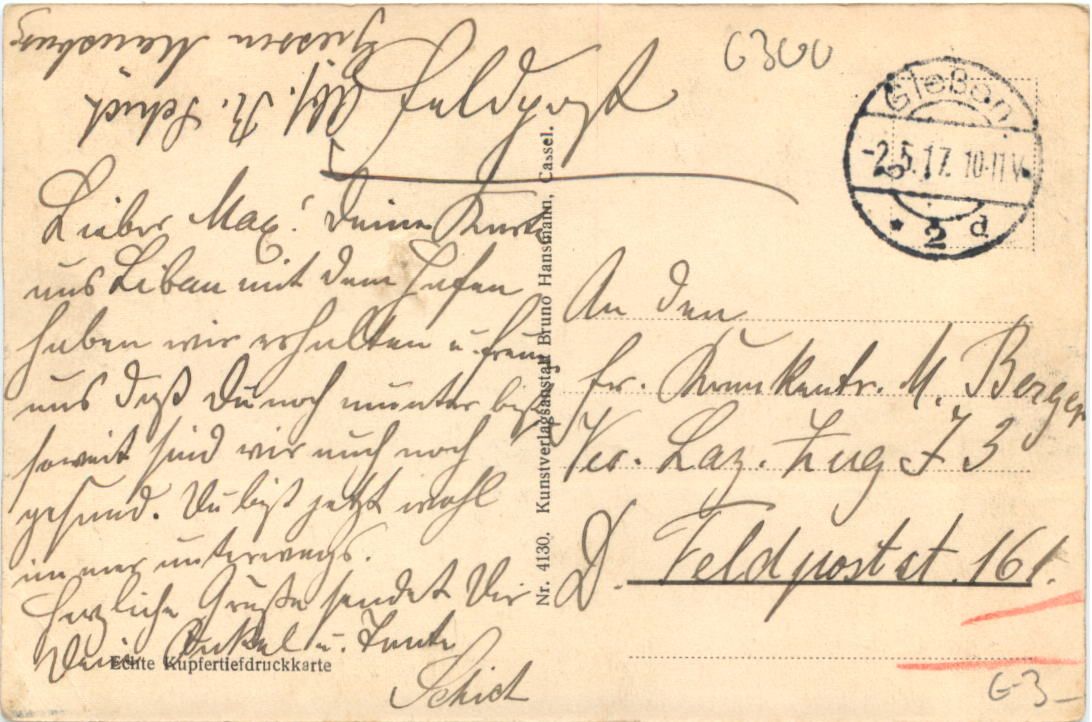 Giessen
Abs. R. Schick
Feldpost
6300
Gießen
-2.5.17. 10-11V
* 2 d
Lieber Max! Deine Karte
aus Libau mit dem Hafen
haben wir erhalten u. freun
uns daß Du noch munter bist
soweit sind wir auch noch
gesund. Du bist jetzt wohl
immer unterwegs.
Herzliche Grüße sendet Dir
Dein Onkel u. Tante
Schick
Echte Kupfertiefdruckkarte
Nr. 4130. Kunstverlagsanstalt Bruno Hansmann, Cassel.
An den
fr. Krankentr. M. Berger
Ver. Laz. Zug J 3
D. Feldpostst. 161.
G-3-